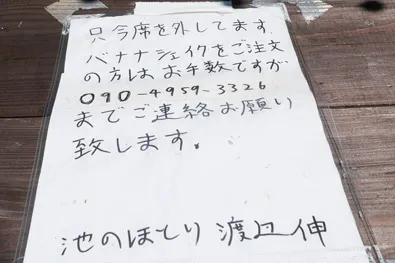 只今席を外してます.
バナナシェイクをご注文
の方は お手数ですが
090-4959-3326
までご連絡お願い
致します.
池のほとり 渡辺 伸